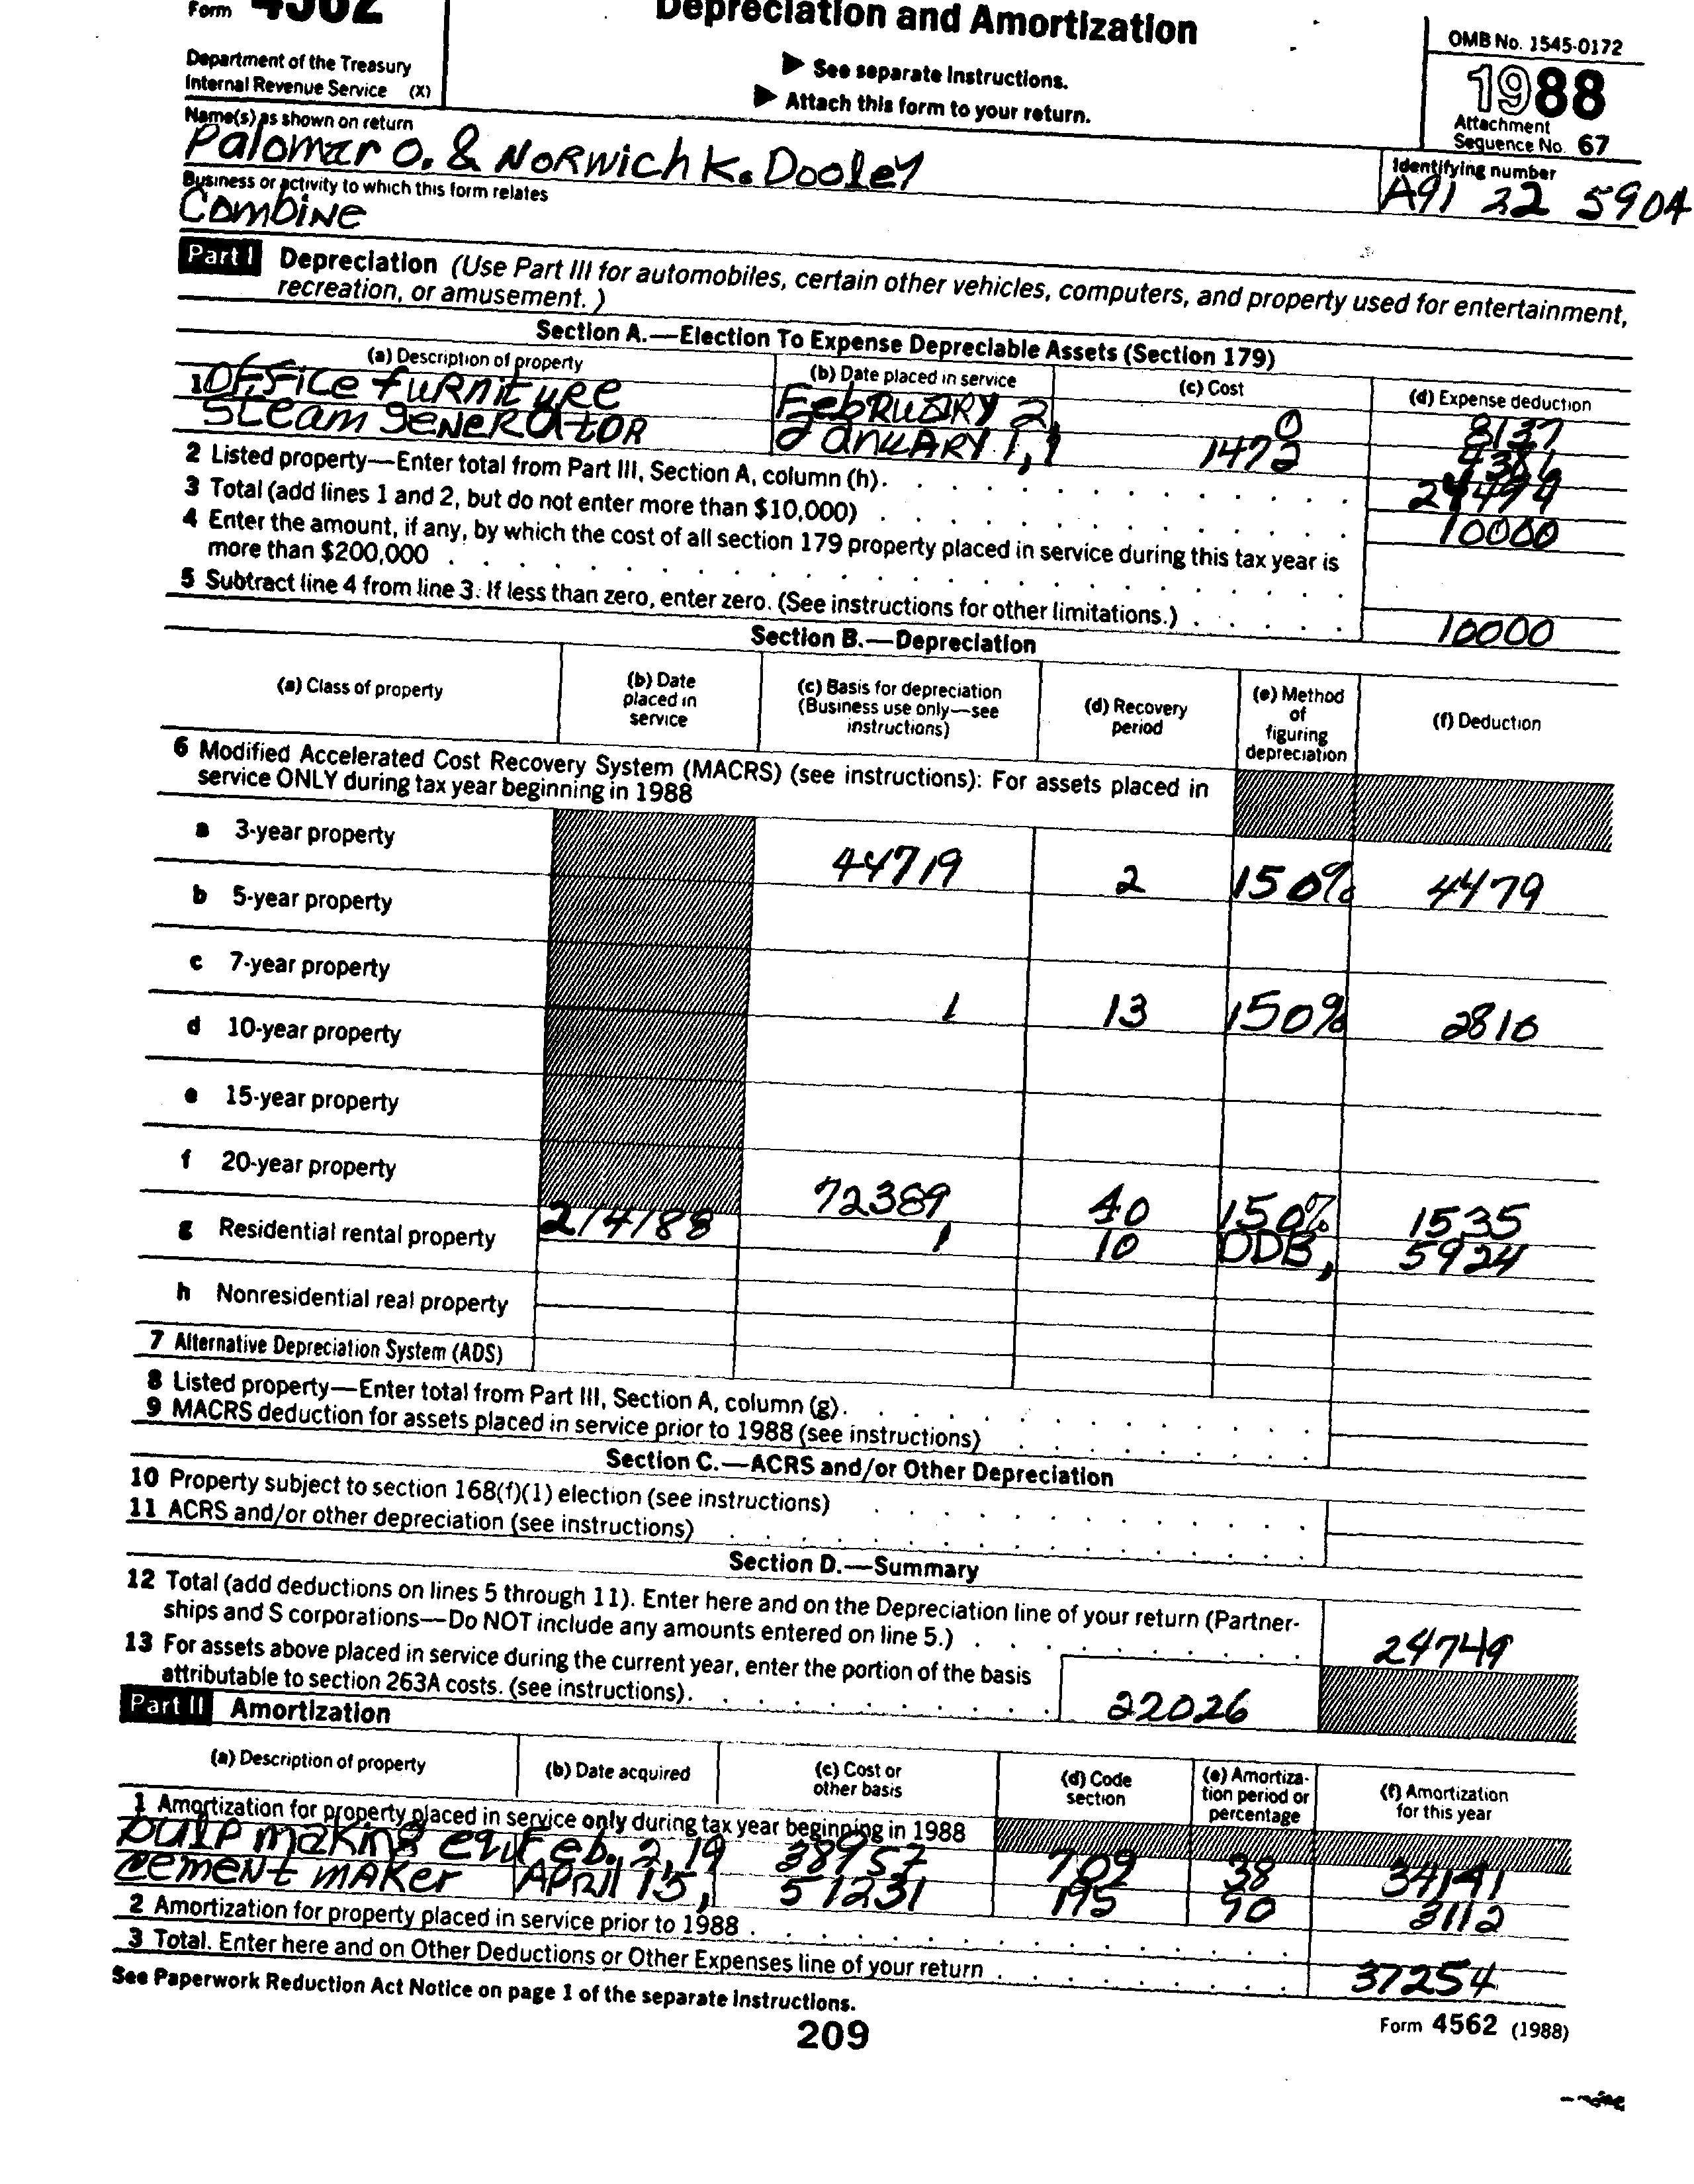 Form 4562
Depreciation and Amortization
OMB No. 1545-0172
Department of the Treasury
Internal Revenue Service (X)
▶ See separate Instructions.
▶ Attach this form to your return.
1988
Attachment
Sequence No. 67
Name(s) as shown on return
Palomar O. & Norwich K. Dooley
Identifying number
A91 22 5904
Business or activity to which this form relates
Combine
Part I Depreciation (Use Part III for automobiles, certain other vehicles, computers, and property used for entertainment,
recreation, or amusement. )
Section A.—Election To Expense Depreciable Assets (Section 179)
(a) Description of property (b) Date placed in service (c) Cost (d) Expense deduction
1 Office furniture February 2 0 8137
Steam generator January 1, 1 1472
2 Listed property—Enter total from Part III, Section A, column (h).
3 Total (add lines 1 and 2, but do not enter more than $10,000) 10000
4 Enter the amount, if any, by which the cost of all section 179 property placed in service during this tax year is
more than $200,000
5 Subtract line 4 from line 3. If less than zero, enter zero. (See instructions for other limitations.) 10000
Section B.—Depreciation
(a) Class of property
(b) Date
placed in
service
(c) Basis for depreciation
(Business use only—see
instructions)
(d) Recovery
period
(e) Method
of
figuring
depreciation
(f) Deduction
6 Modified Accelerated Cost Recovery System (MACRS) (see instructions): For assets placed in
service ONLY during tax year beginning in 1988
a 3-year property 44719 2 150% 4479
b 5-year property
c 7-year property 1 13 150% 2810
d 10-year property
e 15-year property
f 20-year property 72389 40 150% 1535
g Residential rental property 2/4/88 1 10 DDB, 5924
h Nonresidential real property
7 Alternative Depreciation System (ADS)
8 Listed property—Enter total from Part III, Section A, column (g).
9 MACRS deduction for assets placed in service prior to 1988 (see instructions)
Section C.—ACRS and/or Other Depreciation
10 Property subject to section 168(f)(1) election (see instructions)
11 ACRS and/or other depreciation (see instructions)
Section D.—Summary
12 Total (add deductions on lines 5 through 11). Enter here and on the Depreciation line of your return (Partner-
ships and S corporations—Do NOT include any amounts entered on line 5.) 24749
13 For assets above placed in service during the current year, enter the portion of the basis
attributable to section 263A costs. (see instructions). 22026
Part II Amortization
(a) Description of property (b) Date acquired
(c) Cost or
other basis
(d) Code
section
(e) Amortiza-
tion period or
percentage
(f) Amortization
for this year
1 Amortization for property placed in service only during tax year beginning in 1988
Pulp making equi Feb. 2, 19 38957 709 38 34141
Cement maker April 15, 51231 195 90 3112
2 Amortization for property placed in service prior to 1988
3 Total. Enter here and on Other Deductions or Other Expenses line of your return 37254
See Paperwork Reduction Act Notice on page 1 of the separate Instructions.
Form 4562 (1988)
209